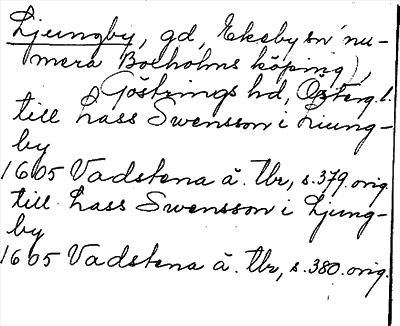 Ljungby, gd, Ekeby sn (nu-
mera Boxholms köping),
Göstrings hd, Österg. l.
till Lass Swensson i Liung-
by
1605 Vadstena ä. Tbr, s. 379. orig.
till Lass Swensson i Ljung-
by
1605 Vadstena ä. Tbr, s. 380. orig.